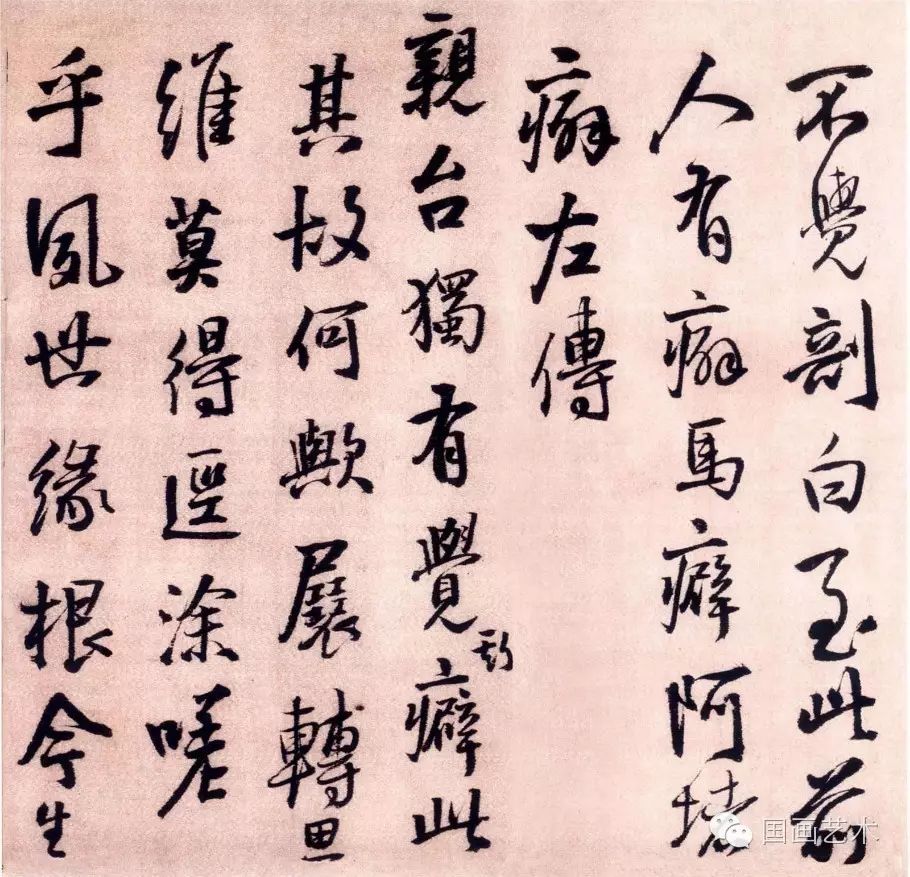 不覺剖白至此前
人有癖馬癖阿堵
癖左傳
親台獨有覺斯癖此
其故何歟展轉思
維莫得逕涂嗟
乎夙世緣根今生
国画艺术